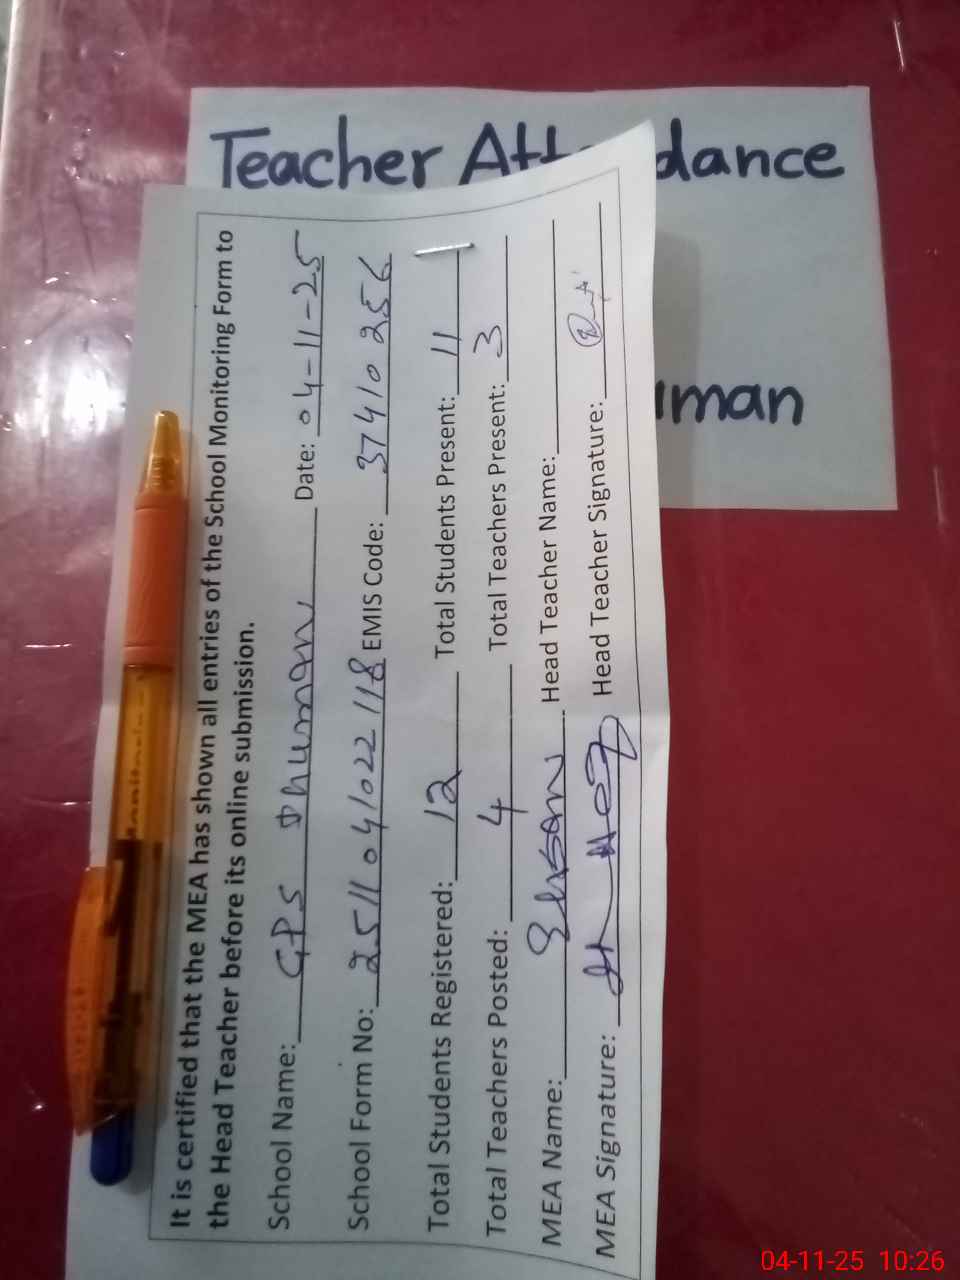 Teacher Att dance
uman
It is certified that the MEA has shown all entries of the School Monitoring Form to
the Head Teacher before its online submission.
School Name: GPS Dhuman Date: 04-11-25
School Form No: 2511041022118 EMIS Code: 37410256
Total Students Registered: 12 Total Students Present: 11
Total Teachers Posted: 4 Total Teachers Present: 3
MEA Name: Ehsan Head Teacher Name:
MEA Signature: Head Teacher Signature:
04-11-25 10:26